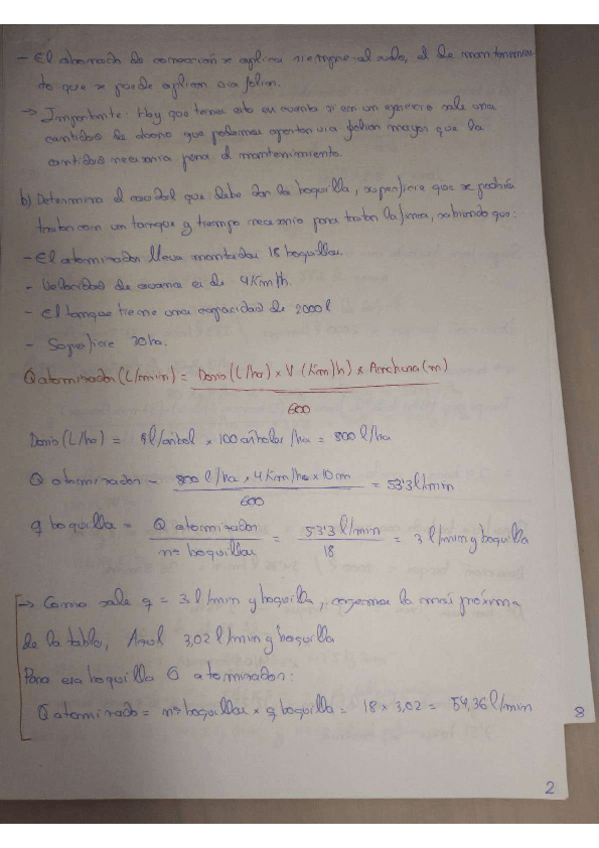 - El abonado de corrección se aplica siempre al suelo, el de mantenimien
to que se puede aplicar via foliar.
→ Importante: Hay que tener esto en cuenta si en un ejercicio sale una
cantidad de abono que podamos aportar via foliar mayor que la
cantidad necesaria para el mantenimiento.
b) Determina el caudal que debe dar la boquilla, superficie que se podría
tratar con un tanque y tiempo necesario para tratar la finca, sabiendo que:
- El atomizador lleva montadas 18 boquillas.
- Velocidad de avance es de 4 Km/h.
- El tanque tiene una capacidad de 2000 l
- Superficie 20 ha.
Q atomizador (L/min) = Dosis (L/ha) x V (Km/h) x Anchura (m)
600
Dosis (L/ha) = 8 l/árbol x 100 árboles /ha = 800 l/ha
Q atomizador = 800 l/ha x 4 Km/h x 10 m = 53'3 l/min
600
q boquilla = Q atomizador = 53'3 l/min = 3 l/min y boquilla
nº boquillas 18
→ Como sale q = 3 l/min y boquilla, cogemos la más próxima
de la tabla, Azul 3,02 l/min y boquilla
Para esa boquilla Q atomizador:
Q atomizado = nº boquillas x q boquilla = 18 x 3,02 = 54,36 l/min
8
2